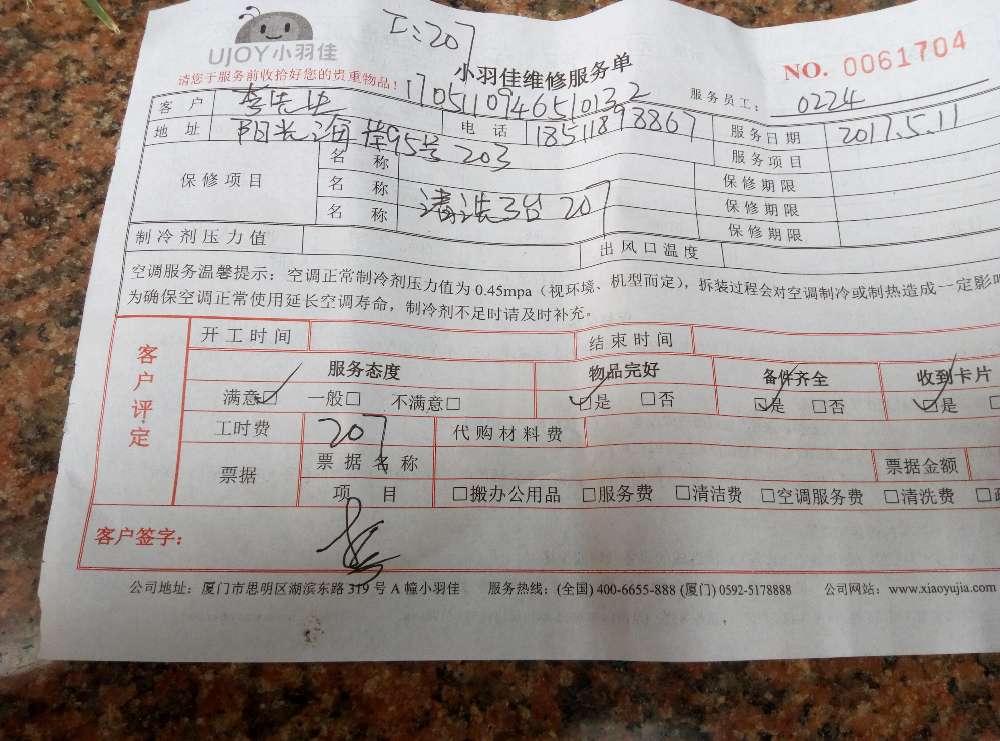 UJOY小羽佳
工:207
请您于服务前收拾好您的贵重物品!
小羽佳维修服务单
NO. 0061704
1705110946510132
服务员工: 0224
客户 李先生 电话 18511898867 服务日期 2017.5.11
地址 阳光海岸95号203 服务项目
保修项目 名称 保修期限
名称 清洗3台 207 保修期限
名称 保修期限
制冷剂压力值 出风口温度
空调服务温馨提示:空调正常制冷剂压力值为 0.45mpa(视环境、机型而定),拆装过程会对空调制冷或制热造成一定影
为确保空调正常使用延长空调寿命,制冷剂不足时请及时补充。
客户评定 开工时间 结束时间
服务态度 物品完好 备件齐全 收到卡片
满意☑ 一般□ 不满意□ ☑是 □否 ☑是 □否 ☑是 □
工时费 207 代购材料费
票据 票据名称 票据金额
项目 □搬办公用品 □服务费 □清洁费 □空调服务费 □清洗费 □
客户签字:
公司地址:厦门市思明区湖滨东路 319 号 A 幢小羽佳 服务热线:(全国) 400-6655-888 (厦门) 0592-5178888 公司网站:www.xiaoyujia.com